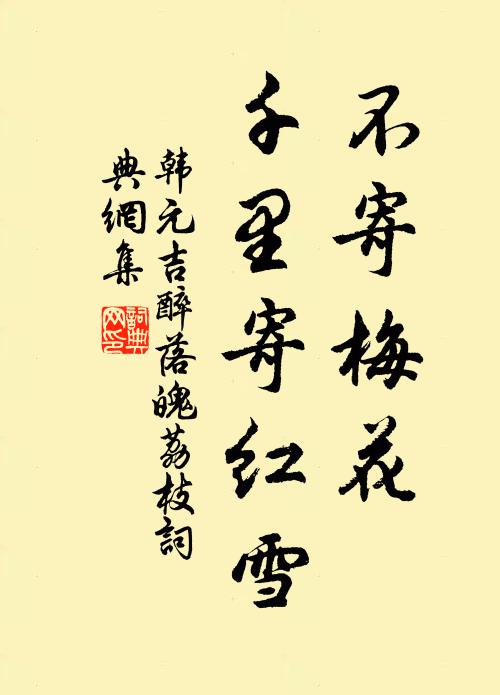 不寄梅花
千里寄红雪
韩元吉醉落魄荔枝詞
典網集
詞典
网印